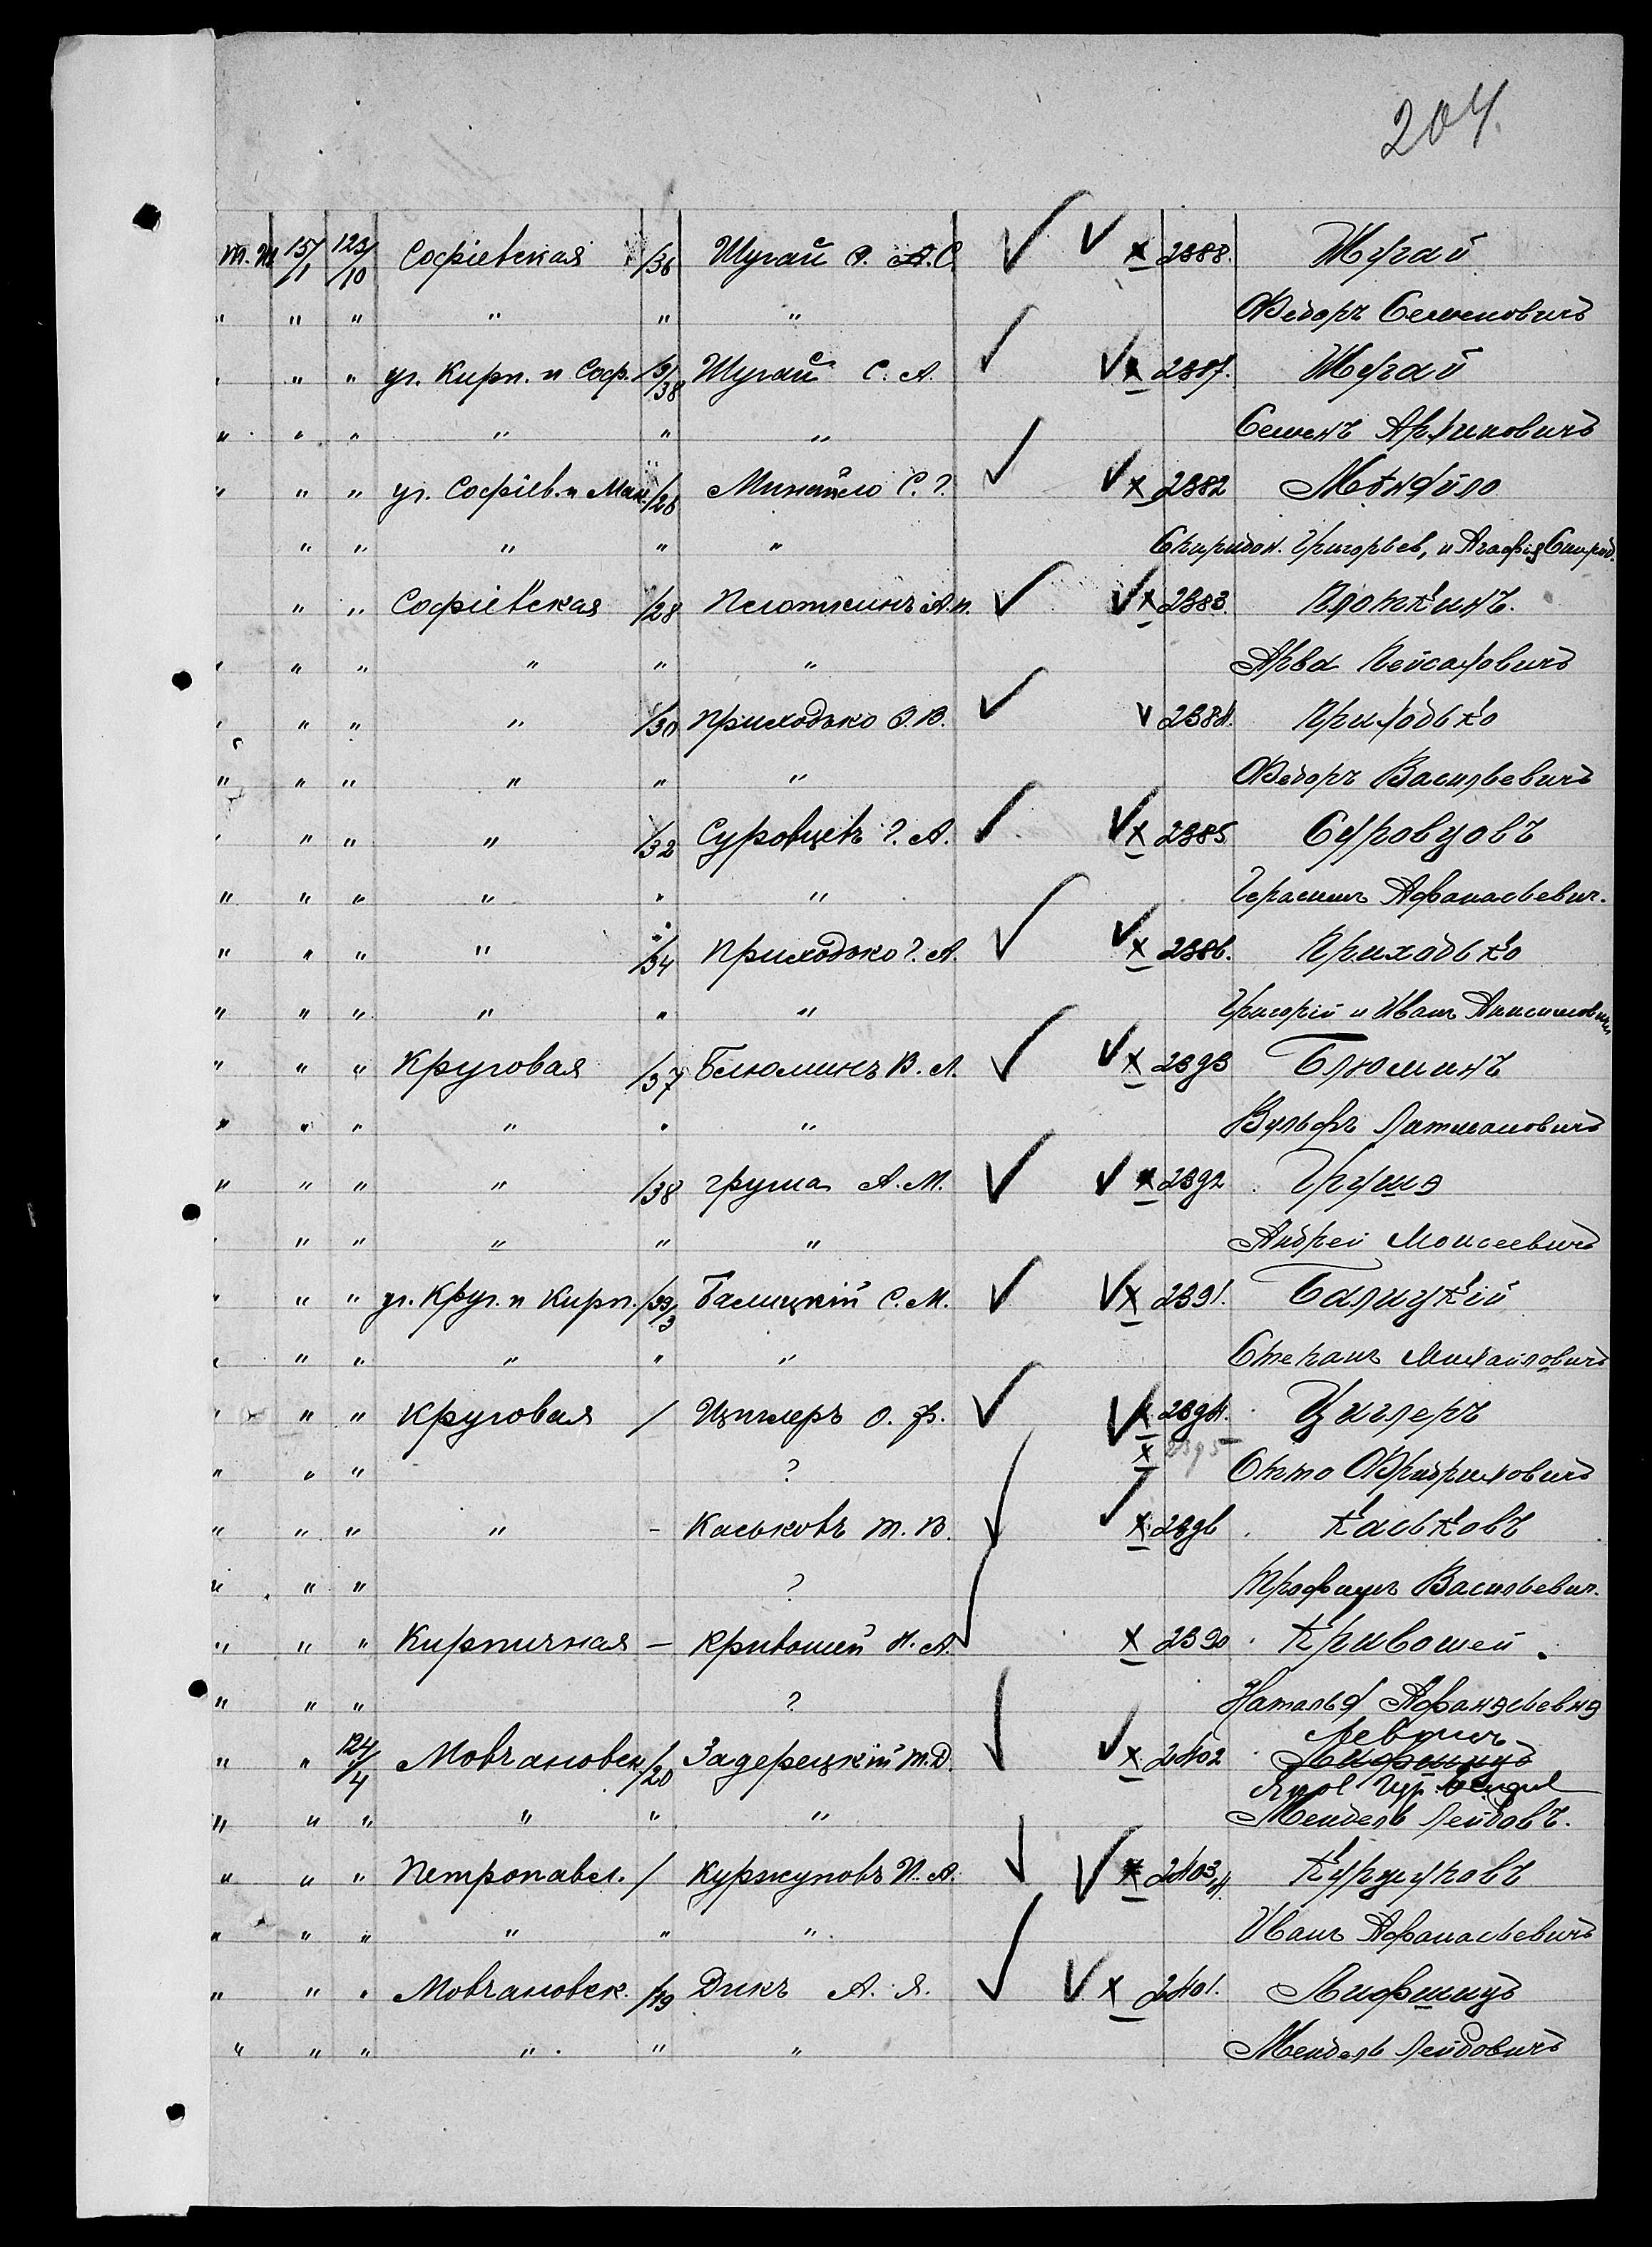 204.
М.М. 15/1 123/10 Софіевская /36 Шугай Ѳ. С. 2388. Шугай
" " " " " " Ѳедоръ Семеновичъ
" " уг. Кирп. и Соф. /38 Шугай С. А. 2387. Шугай
" " " " " " Семенъ Архиповичъ
" " " уг. Софіев. и Ман. /26 Минайло С. Г. 2382
" " " " " Спиридон. Григорьев, и Агафія Спирид.
" " Софіевская /28 Плоткинъ А. П. 2383. Плоткинъ.
" " " " " " Арва Пейсаховичъ
" " " " /30 Приходько Ѳ. В. 2384. Приходько
" " " " " " Ѳедоръ Васильевичъ
" " " " /32 Суровцевъ Г. А. 2385. Суровцовъ
" " " " " " Герасимъ Афанасьевич.
" " " " /34 Приходько Г. А. 2386. Приходько
" " " " " " Григорій и Иванъ
" " " Круговая /37 Блюминъ В. Л. 2393 Блюминъ
" " " " " " Вульфъ Литмановичъ
" " " " /38 Груша А. М. 2392 Груша
" " " " " " Андрей Моисеевичъ
" " " уг. Круг. и Кирп. /39/3 Балицкій С. М. 2391. Балицкій
" " " " " " Степанъ Михайловичъ
" " " Круговая / Циглеръ О. Ф. 2394. Циглеръ
" " " ? 2395 Отто Фридриховичъ
" " " " - Каськовъ Т. В. 2396 Каськовъ
" " " ? Трофимъ Васильевич.
" " " Кирпичная — Кривошей Н. А. 2390 Кривошей
" " " ? Наталья Афанасьевна
" " 124/4 Мовчановск. /20 Задерецкій М. Д. 2402 Левшицъ
" " " " " " Мендель Лейбовъ.
" " " Петропавл. / Куржуповъ И. А. 2403/4. Куржуповъ
" " " " " " Иванъ Афанасьевичъ
" " " Мовчановск. /19 Дикъ А. Я. 2401. Лифшицъ
" " " " " " Мендель Лейбовичъ